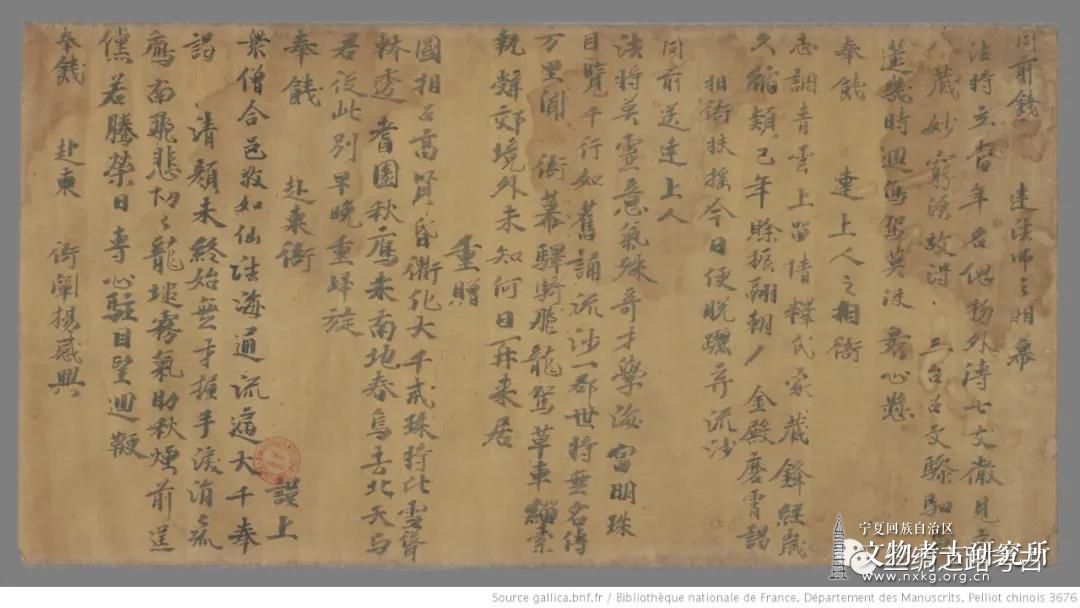 同前餞 達法師之相幕
法將立音年名他物外濤七文徹見
藏妙窮 故得三台呂文驟駟
筵幾時週馬駕莫汶 心懸
奉餞 達上人之相衙
志調青雲上 情釋氏家藏鋒經歲
久縮類已年賒振翮朝 金殿磨霄謁
相衙扶搖今日便脫躧弃流沙
同前送達上人
法將英靈意氣殊奇才學海富明珠
目覽千行如舊誦流沙一郡世將無名傳
万里聞 衙幕驛騎飛龍駕草車緇素
執聲郊境外未知何日再來居
重贈
國相呂高貝昏衢化大千戒珠將比雪聲
轉透 香園秋鴈來南地春鳥去北天与
君從此別早晚重歸旋
奉餞 赴東衙 謹上
眾僧合邑敬如仙法海通流遍大千奉
謁 清顏未終始無才握手淚涓〻孤
鴈南飛悲切〻龍堆霧氣助秋煙前逞
儻若騰榮日專心駐目望迴鞭
奉餞 赴東 衙闡揚感興
宁夏回族自治区
文物考古研究所
www.nxkg.org.cn
丝绸之路考古
Source gallica.bnf.fr / Bibliothèque nationale de France. Département des Manuscrits. Pelliot chinois 3676